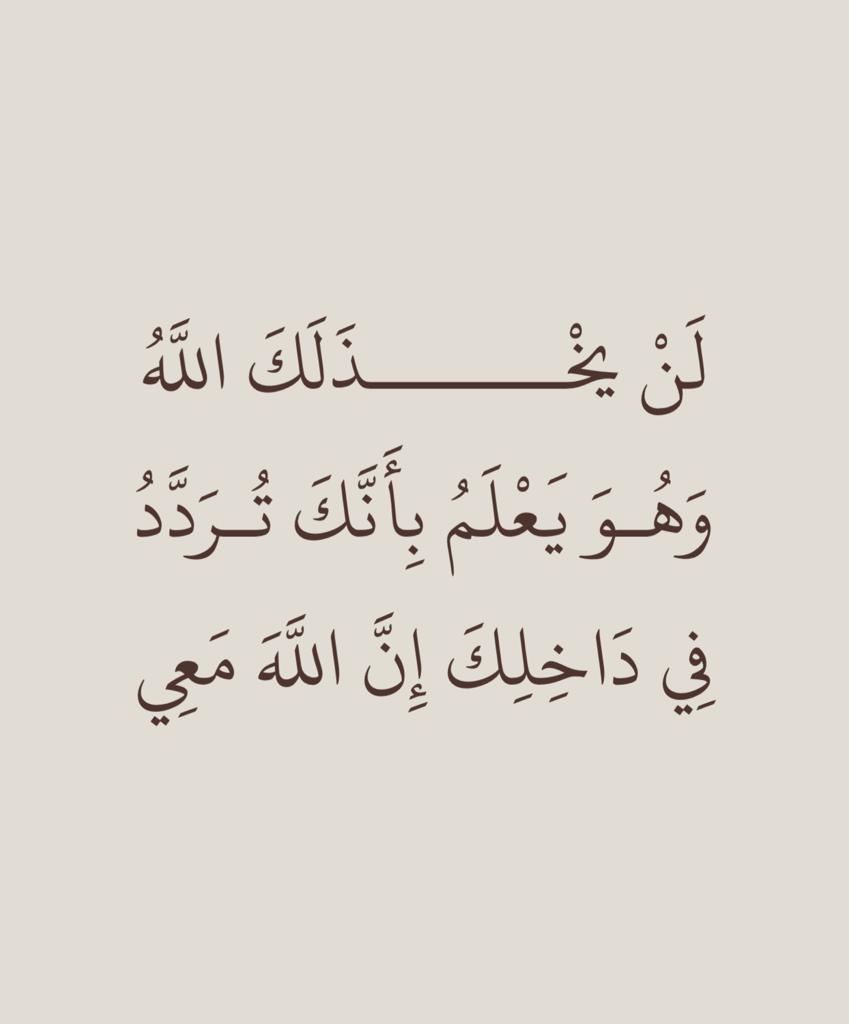 لَنْ يَخْـــــــــذَلَكَ اللَّهُ
وَهُـوَ يَعْلَمُ بِأَنَّكَ تُـرَدَّدُ
فِي دَاخِلِكَ إِنَّ اللَّهَ مَعِي